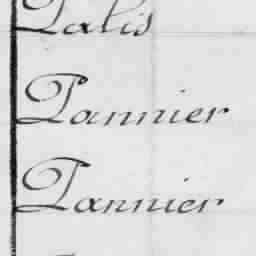 Palis
Pannier
Pannier